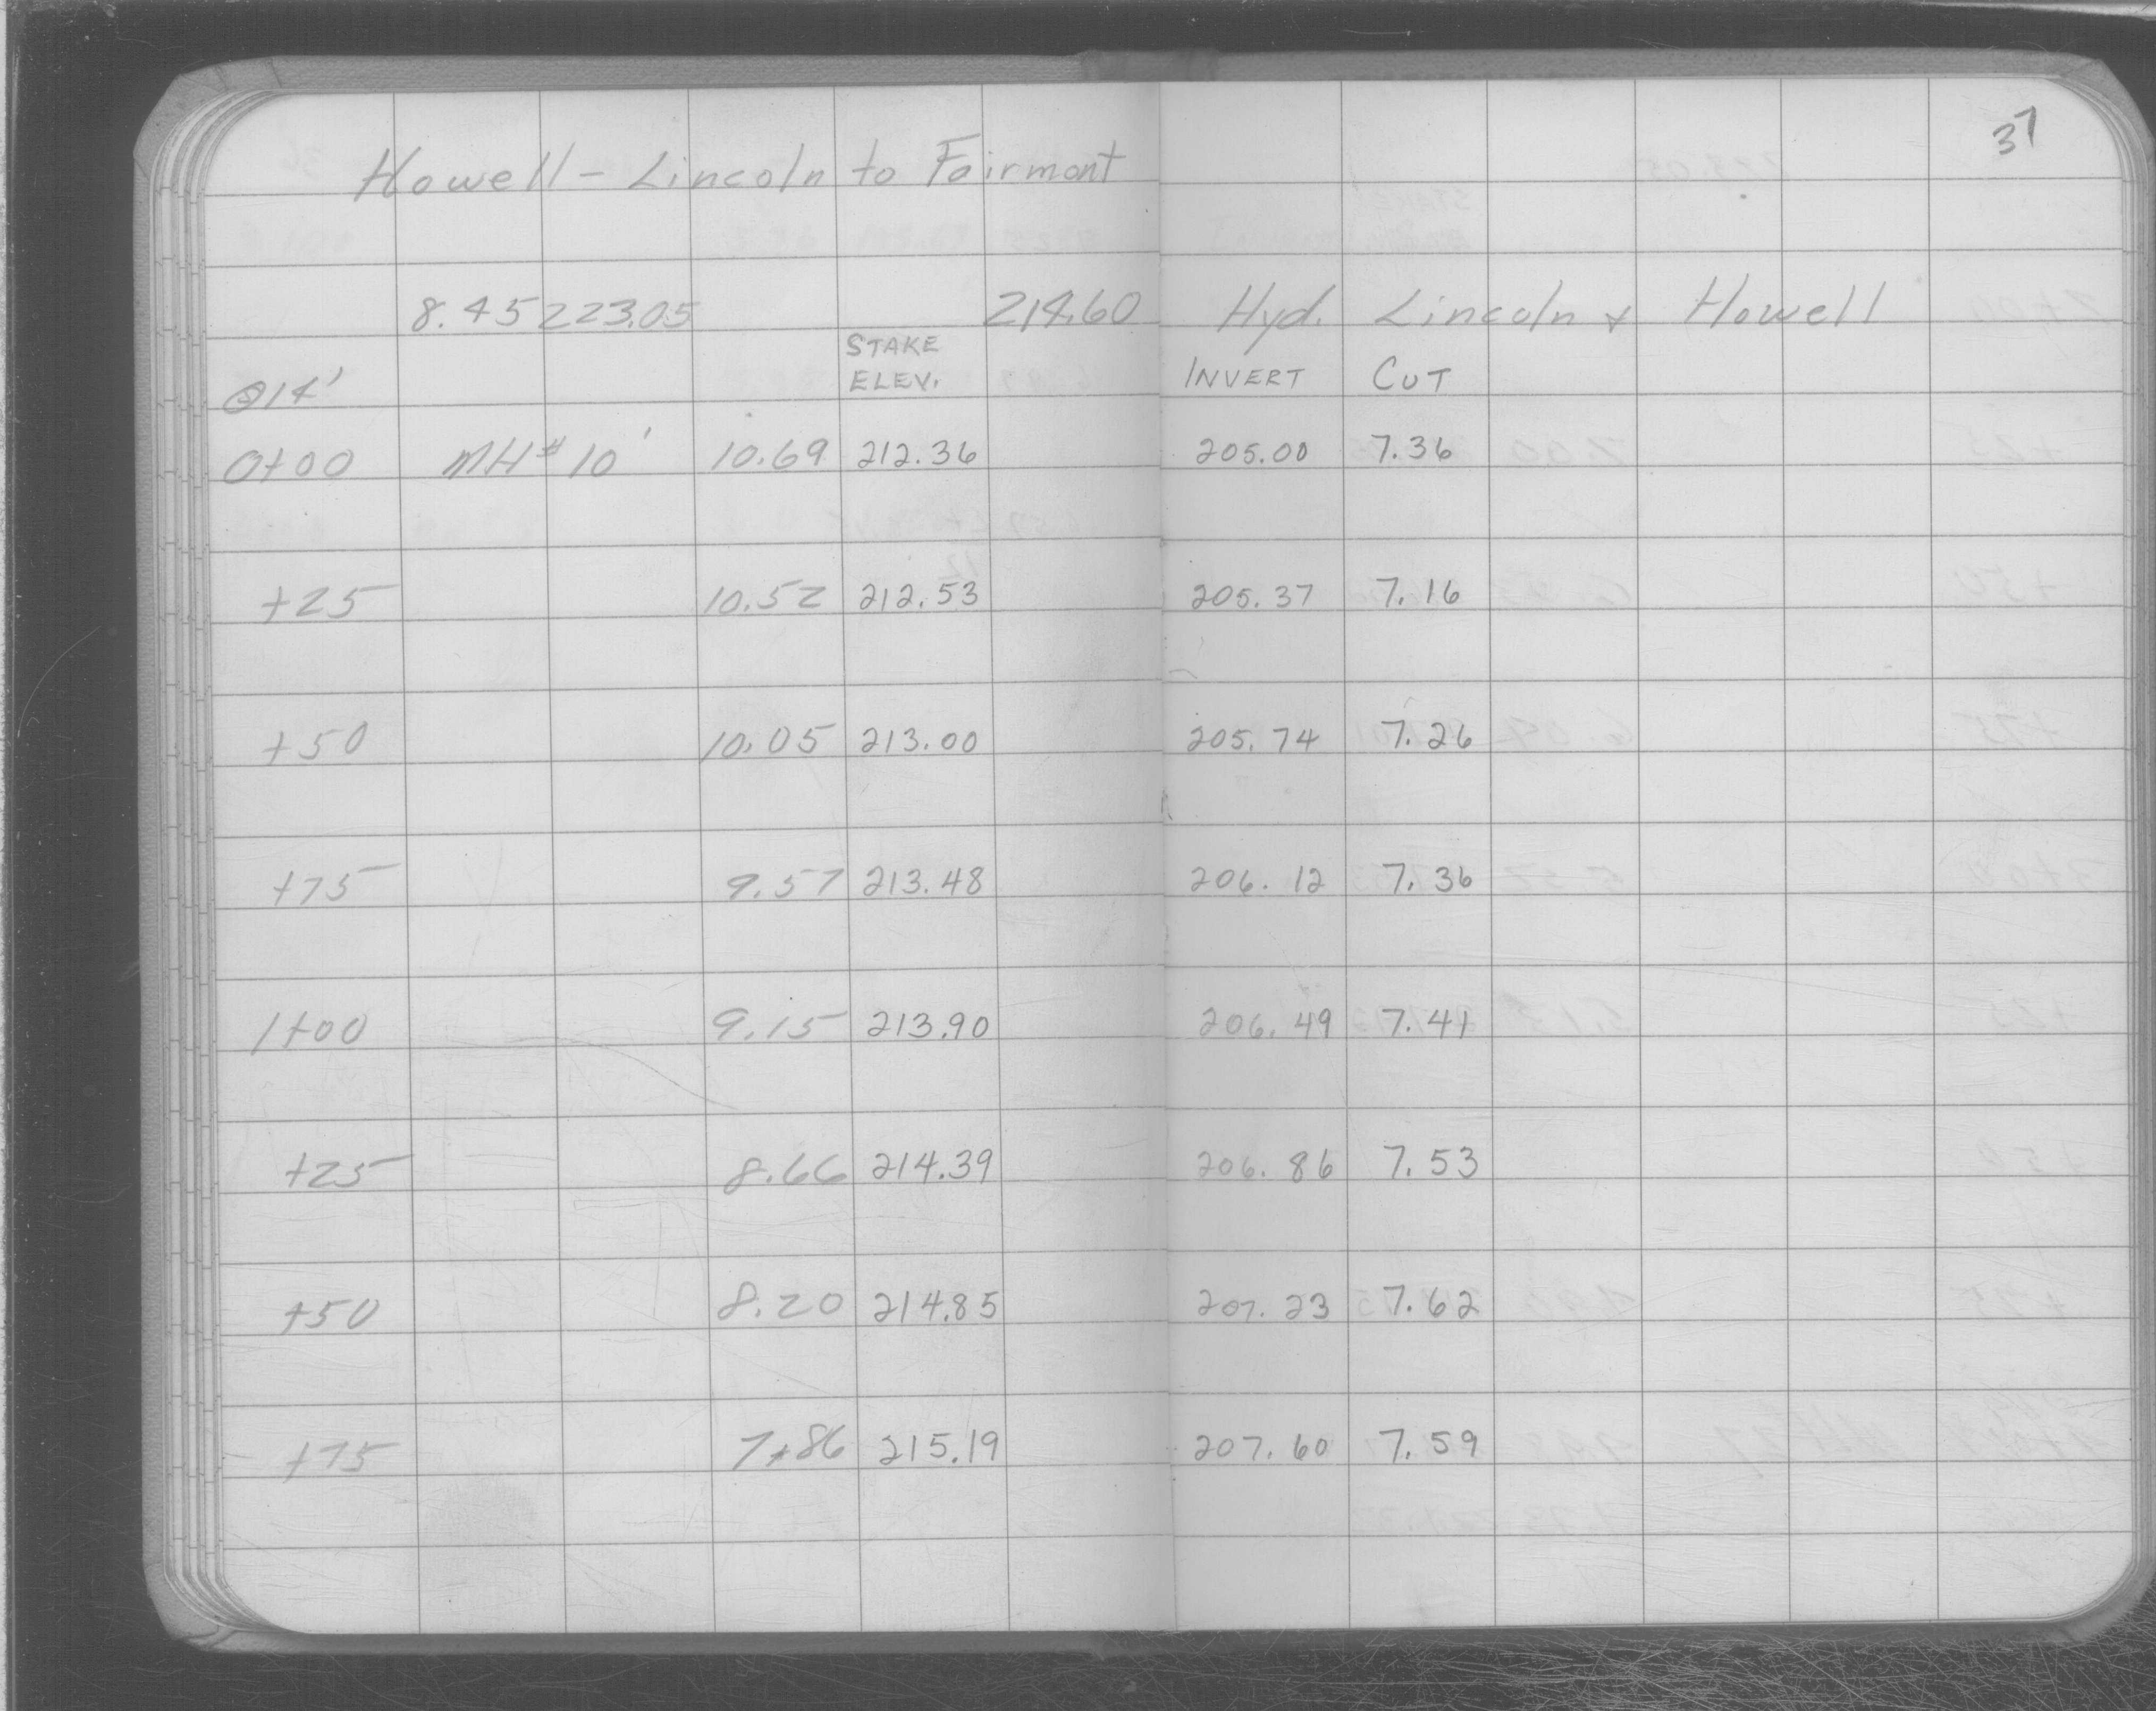 37
Howell - Lincoln to Fairmont
8.45 223.05 214.60 Hyd. Lincoln & Howell
STAKE
@14' ELEV. INVERT CUT
0+00 MH# 10' 10.69 212.36 205.00 7.36
+25 10.52 212.53 205.37 7.16
+50 10.05 213.00 205.74 7.26
+75 9.57 213.48 206.12 7.36
1+00 9.15 213.90 206.49 7.41
+25 8.66 214.39 206.86 7.53
+50 8.20 214.85 207.23 7.62
+75 7.86 215.19 207.60 7.59